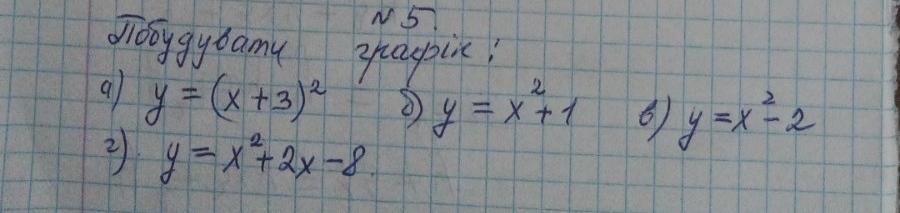 №5.
Побудувати графік:
а) y = (x+3)² б) y = x²+1 в) y = x²-2
г) y = x²+2x-8.